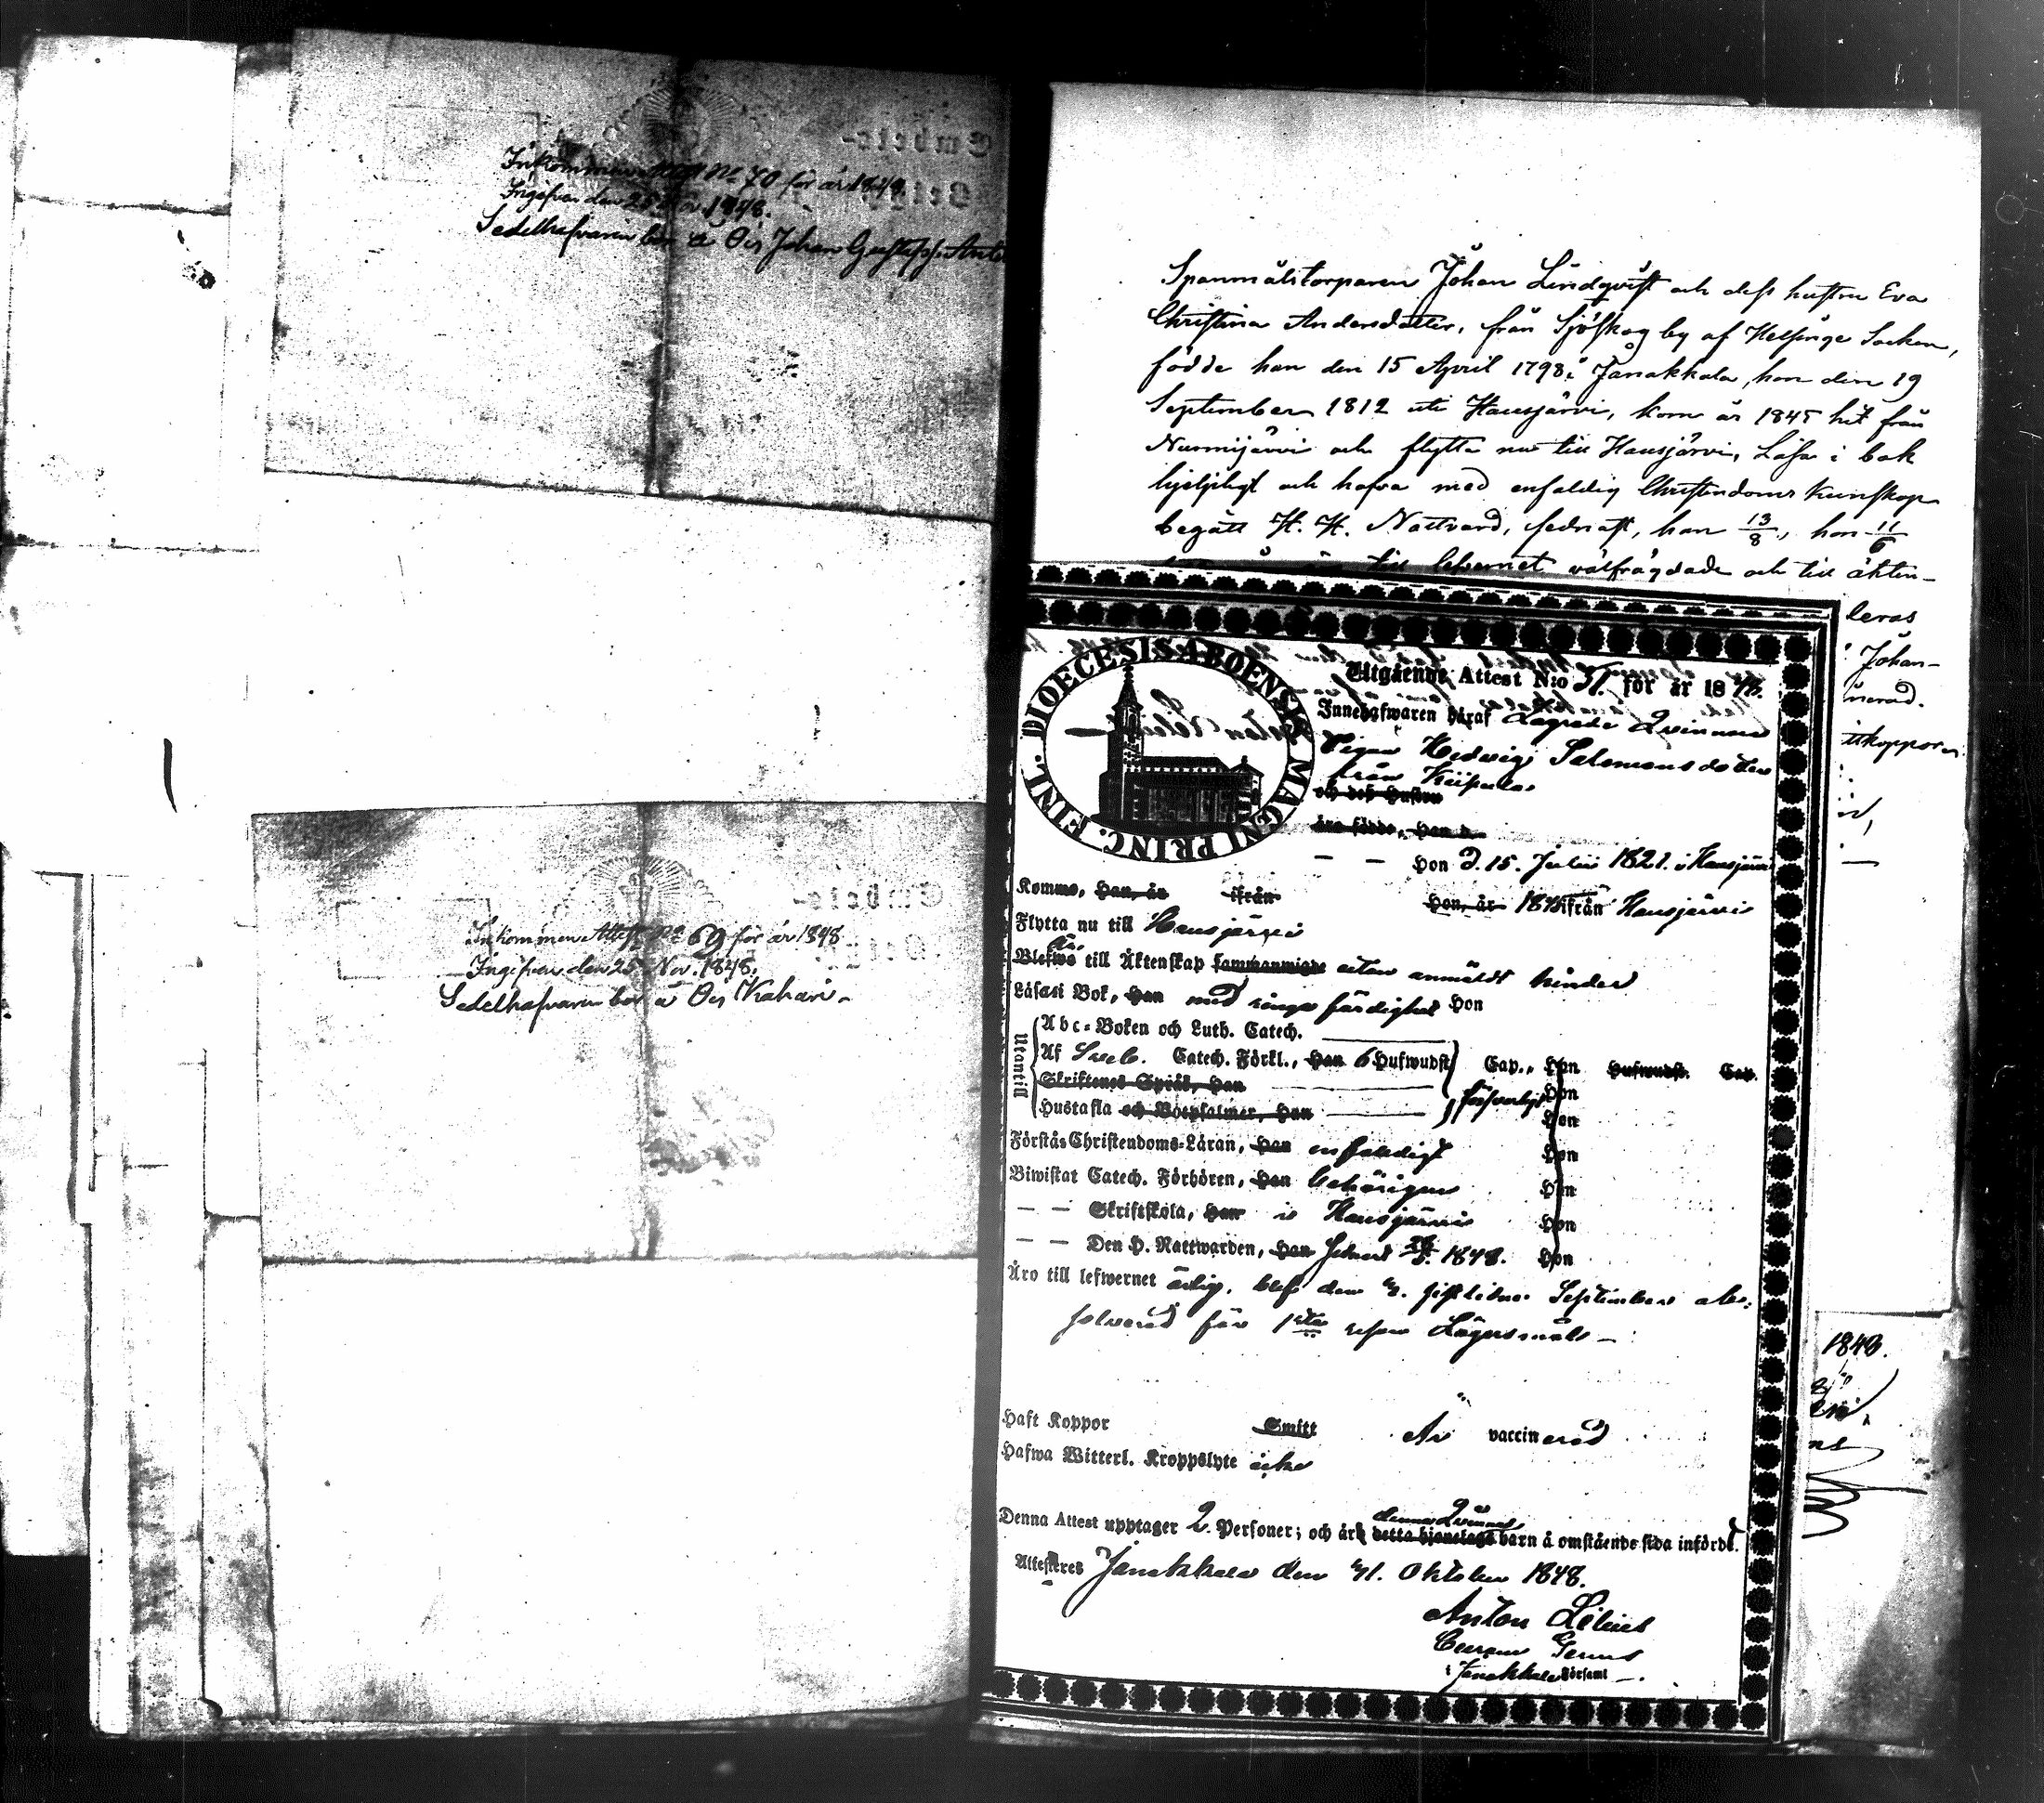 Inkommen Attest No 70 för år 1848.
Ingifven den 25 Nov. 1848.
Sedelhafvaren bor å Ois Johan Gustafss. Antti
Inkommen Attest No 69 för år 1848
Ingifven den 25 Nov. 1848.
Sedelhafvaren bor å Ois Kahari.
Spanmålstorparen Johan Lindqvist och dess hustru Eva
Christina Andersdotter, från Sjöskog by af Helsinge Socken,
födde han den 15 April 1798 i Janakkala, hon den 19
September 1812 uti Hausjärvi, kom år 1845 hit från
Nurmijärvi och flytta nu till Hausjärvi, Läsa i bok
hjelpligt och hafva med enfaldig Christendoms kunskap
begått H. H. Nattvard, sednast, han 13/8, hon 11/6
till lefvernet välfrägdade och till äkten-
leras
Johan-
nerad.
ttkoppor
1848.
DIOECESIS ABOENSIS MAGNI PRINC. FINL.
Utgående Attest N:o 51. för år 1848.
Innehafwaren häraf Lägrade Qvinnan
Hedvig Salomonsdotter
från Kiipula
och dess Hustru
äro födde, Han d.
— — Hon d. 15. Julii 1821. i Hausjärvi
Komne, Han, år ifrån Hon, år 1848 ifrån Hausjärvi
Flytta nu till Hausjärvi
Är
Blefwo till Äktenskap sammanwigde utan anmäldt hinder
Läsa i Bok, Han med ringa färdighet Hon
Utantill
Abc-Boken och Luth. Catech.
Af Sveb. Catech. Förkl., Han 6 Hufwudst Cap., Hon Hufwudst. Cap.
Skriftenes Språk, Han Hon
Hustafla och Botpsalmer, Han försvarligt Hon
Förstås Christendoms-Läran, Han enfaldigt Hon
Biwistat Catech. Förhören, Han behörigen Hon
— — Skriftskola, Han i Hausjärvi Hon
— — Den H. Nattwarden, Han sednast 28/5 1848. Hon
Äro till lefwernet ärlig, blef den sistlidne September ab-
solverad för 1sta resan Lägersmål —
Haft Koppor Smitt Är vaccinerad
Hafwa Witterl. Kroppslyte icke
denna Qvinnas
Denna Attest upptager 2. Personer; och äro detta hjonelags barn å omstående sida införde.
Attesteres Janakkala den 31. Oktober 1848.
Anton Lilius
Curam Gerens
i Janakkala Församl —.